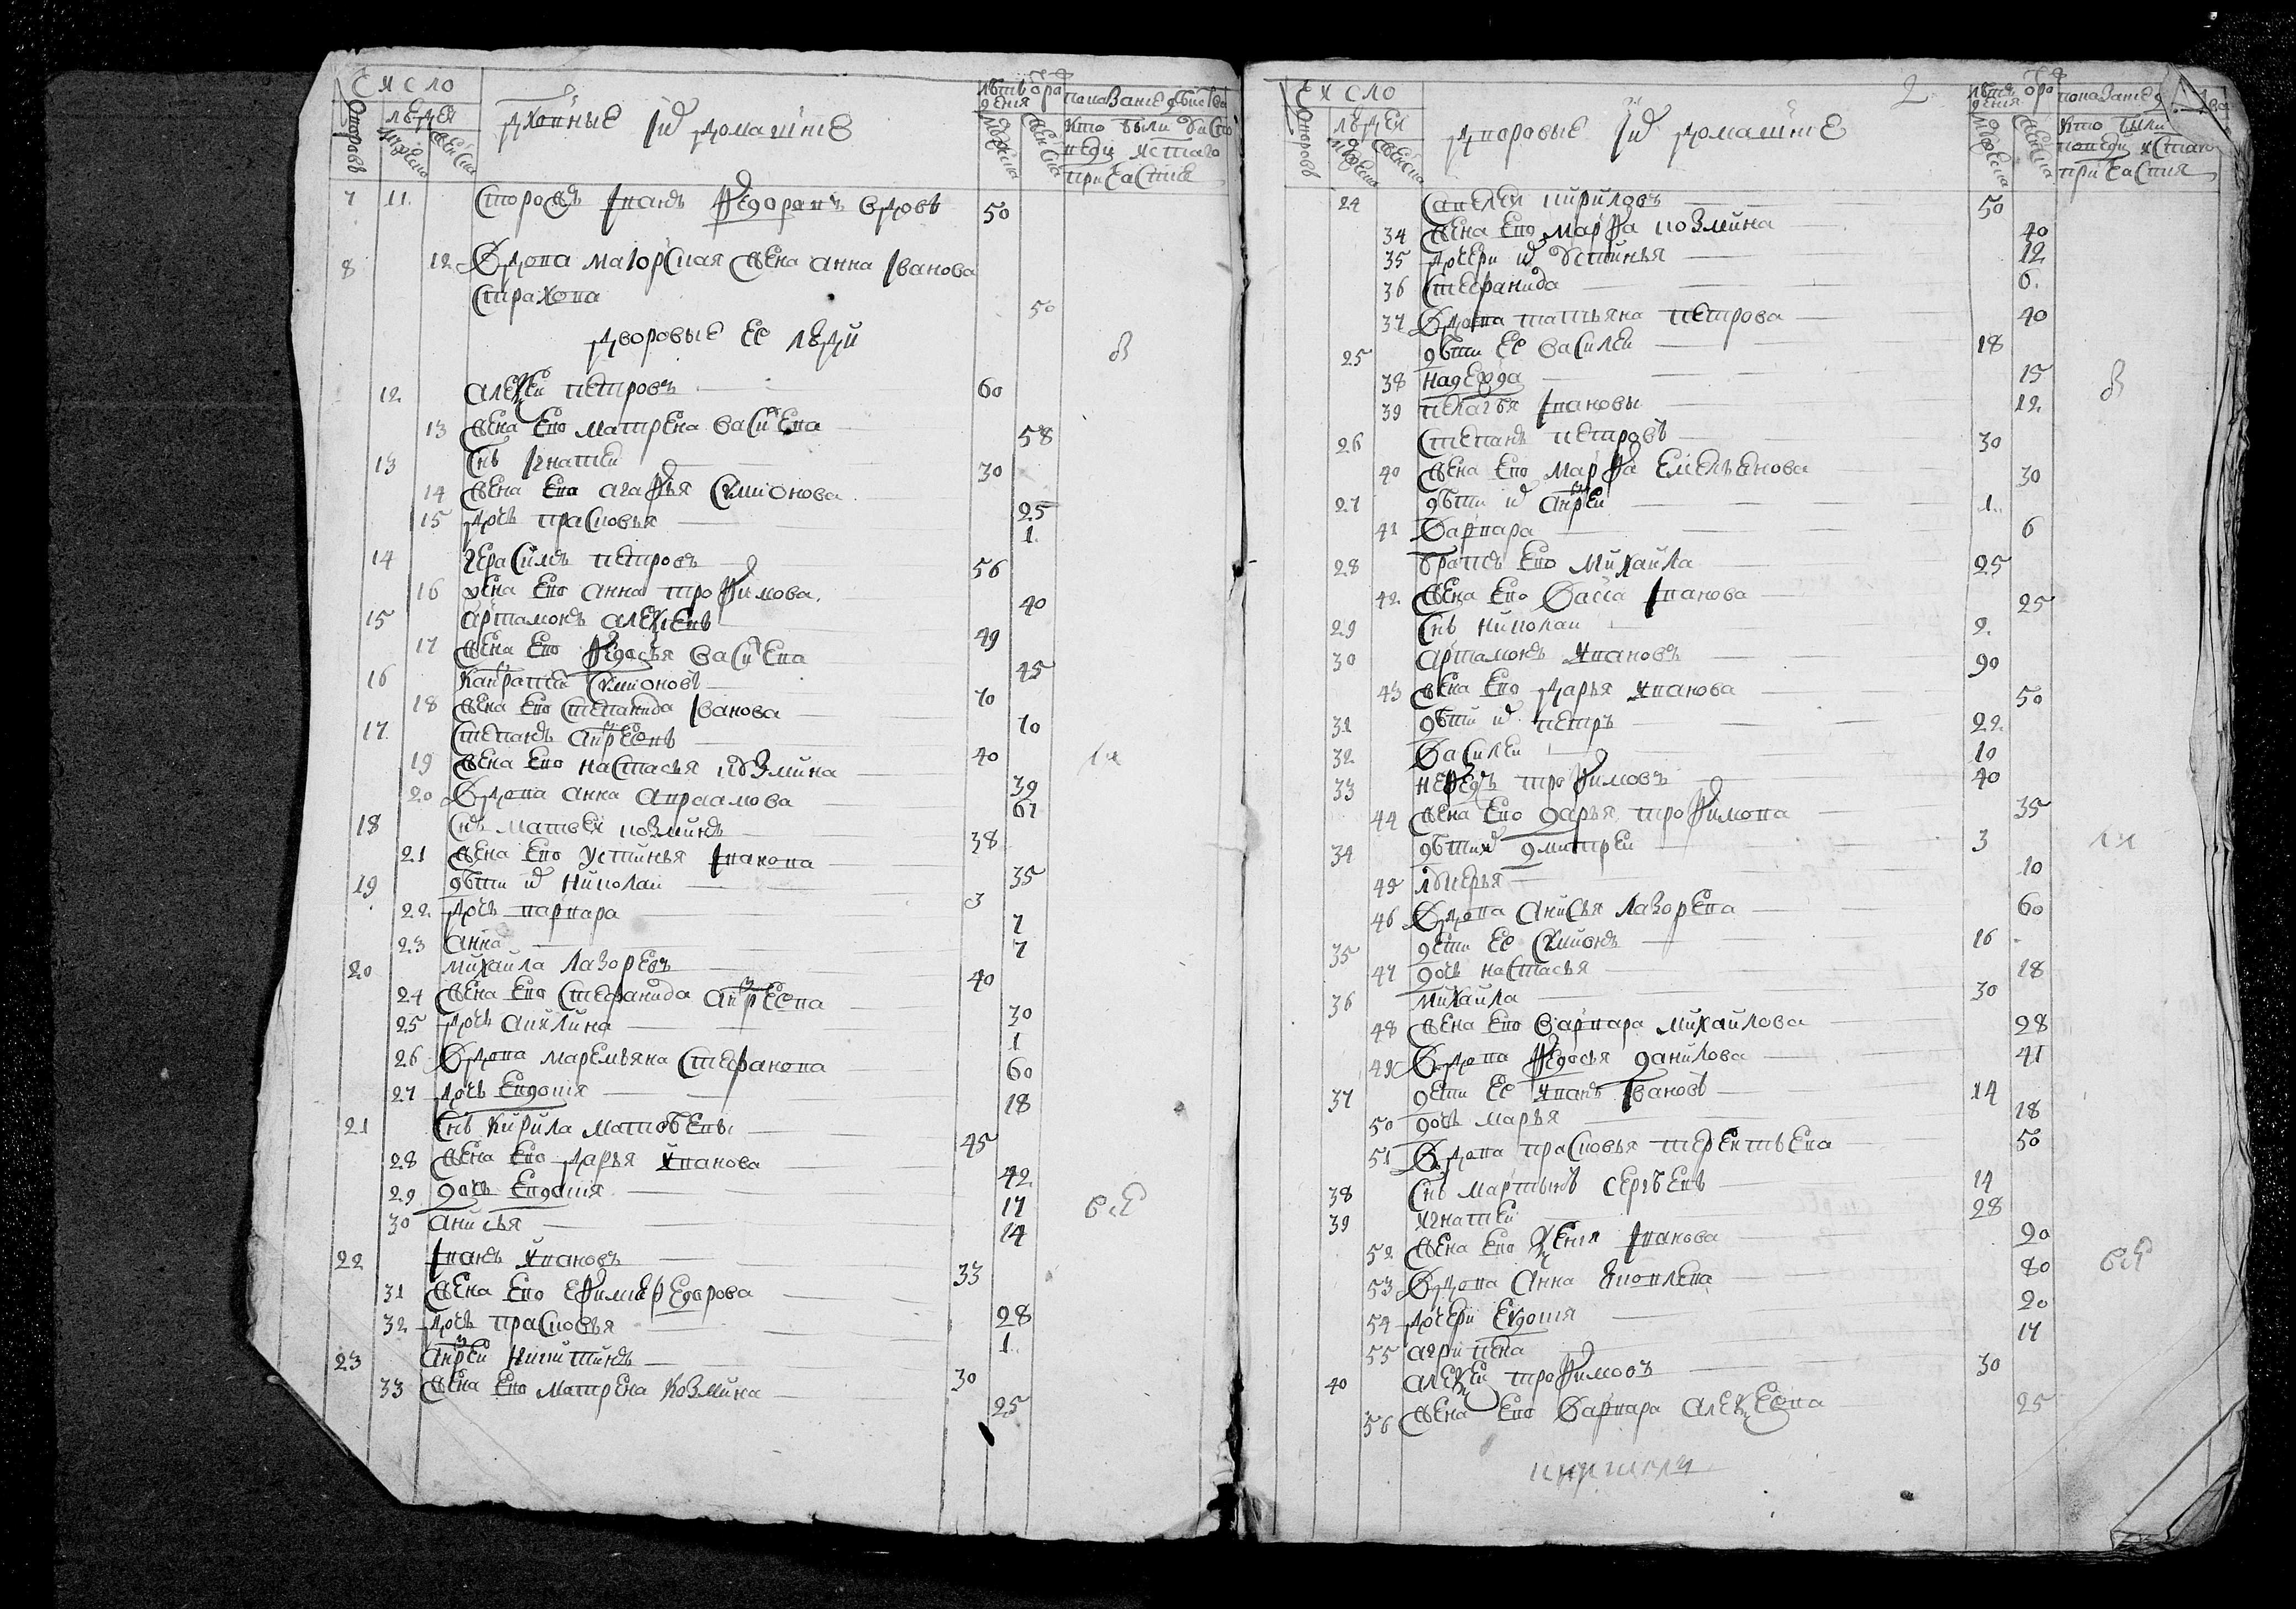 число
дворовъ
людей
мужеска
женска
духовные и их домашние
лѣтъ от рождения
мужеска
женска
показание действа
кто были у исповеди и святаго
причастия
7 11 Сторожъ Iванъ Федоровъ вдовъ 50
8 12 Вдова маiорская жена анна Iванова
Страхова 50
дворовые ее люди
12 алеѯеи петровъ 60
13 жена ево матрена васильева 58
13 Снъ Iгнатеи 30
14 жена ево агафья Симионова 25
15 дочь прасковья 1
14 герасимъ петровъ 56
16 жена ево анна трофимова 40
15 артамонъ алеѯѣевъ 49
17 жена ево федосья васильева 45
16 Кандратеи Симионовъ 70
18 жена ево степанида Iванова 70
17 степанъ андреевъ 40
19 жена ево настасья козмина 39
20 Вдова анна авраамова 61
18 Снъ матвеи козминъ 38
21 жена ево устинья Iванова 35
19 дѣти их николаи 3
22 дочь варвара 7
23 анна 7
20 михаила лазоревъ 40
24 жена ево стефанида андреева 30
25 дочь акилина 1
26 Вдова маремьяна стефанова 60
27 дочь евдокия 18
21 Снъ кирила матвѣевъ 45
28 жена ево дарья Иванова 42
29 дочь евдокия 17
30 анисья 14
22 Iванъ Ивановъ 33
31 жена ево ефимия федорова 28
32 дочь прасковья 1
23 андреи никитинъ 30
33 жена ево матрена козмина 25
2
число
дворовъ
людей
мужеска
женска
дворовые и их домашние
лѣтъ от рождения
мужеска
женска
показание
кто были
исповеди и святаго
причастия
24 савелеи кириловъ 50
34 жена ево марфа козмина 40
35 дочери их устинья 12
36 стефанида 6
37 Вдова татьяна петрова 40
25 дѣти ее василеи 18
38 надежда 15
39 пелагѣя Iвановы 12
26 степанъ петровъ 30
40 жена ево марфа емельянова 30
27 дѣти их андреи 1
41 Варвара 6
28 братъ ево михаила 25
42 жена ево Васса Iванова 25
29 Снъ николаи 2
30 артамонъ Ивановъ 90
43 жена ево дарья Иванова 50
31 дѣти их петръ 22
32 Василеи 10
33 нефедъ трофимовъ 40
44 жена ево дарья трофимова 35
34 дѣти их дмитреи 3
45 лукерья 10
46 Вдова анисья лазорева 60
35 дети ее Симионъ 16
47 дочь настасья 18
36 михаила 30
48 жена ево варвара михаилова 28
49 Вдова федосья данилова 41
37 дети ее Иванъ Iвановъ 14
50 дочь марья 18
51 Вдова прасковья терентьева 50
38 Снъ мартынъ сергѣевъ 14
39 Игнатеи 28
52 жена ево ѯения Iванова 20
53 Вдова анна яковлева 80
54 дочери евдокия 20
55 агрипена 17
40 алеѯеи трофимовъ 30
56 жена ево Варвара алеѯеева 25